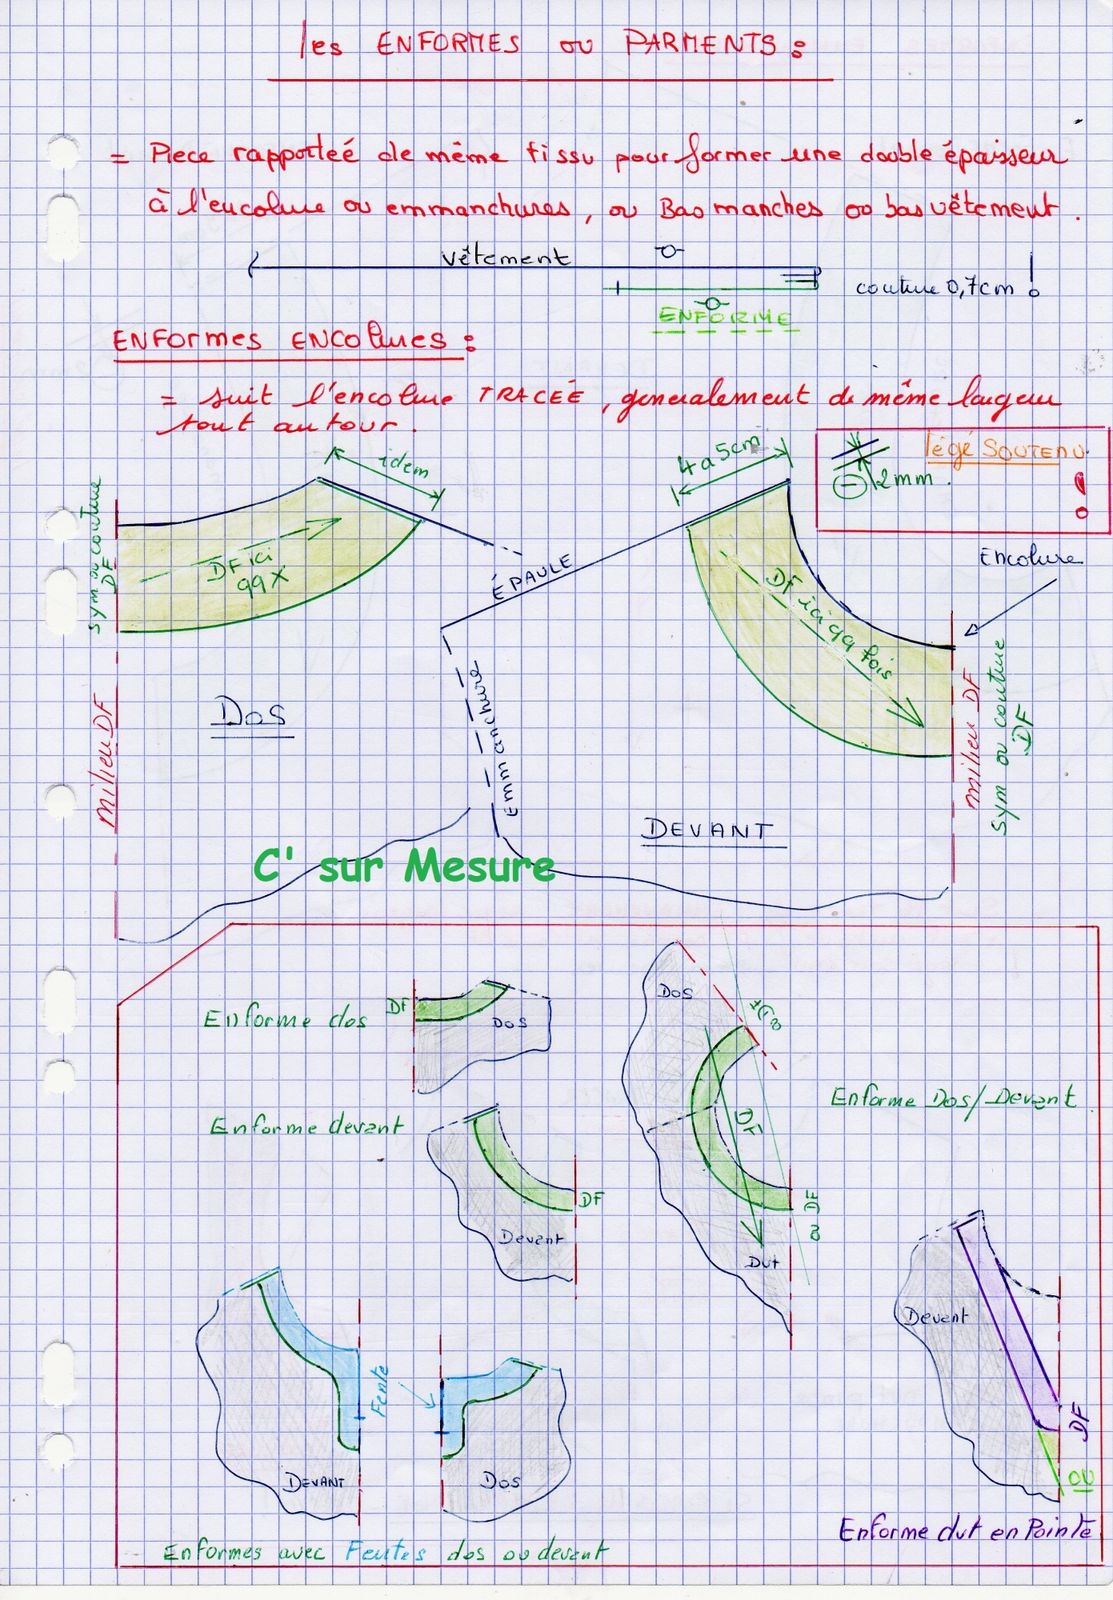 les ENFORMES ou PARMENTS :
= Piece rapporteé de même tissu pour former une double épaisseur
à l'encolure ou emmanchures, ou Bas manches ou bas vêtement .
vêtement
couture 0,7cm !
ENFORME
ENFORMES ENCOLURES :
= suit l'encolure TRACÉE, generalement de même largeur
tout autour .
idem
4 a 5cm
légé SOUTENU
2mm .
!
Sym ou couture
DF
DF ici
99X
ÉPAULE
Encolure
DF ici 99 fois
Emmanchure
Dos
milieu DF
milieu DF
Sym ou couture
DF
DEVANT
C' sur Mesure
Enforme dos
DF
Dos
Dos
Enforme devant
DF
Devant
DF
ou DF
Dvt
Enforme Dos/Devant
Devant
DF
OU
Enforme dvt en Pointe
Fente
DEVANT
Dos
Enformes avec Fentes dos ou devant